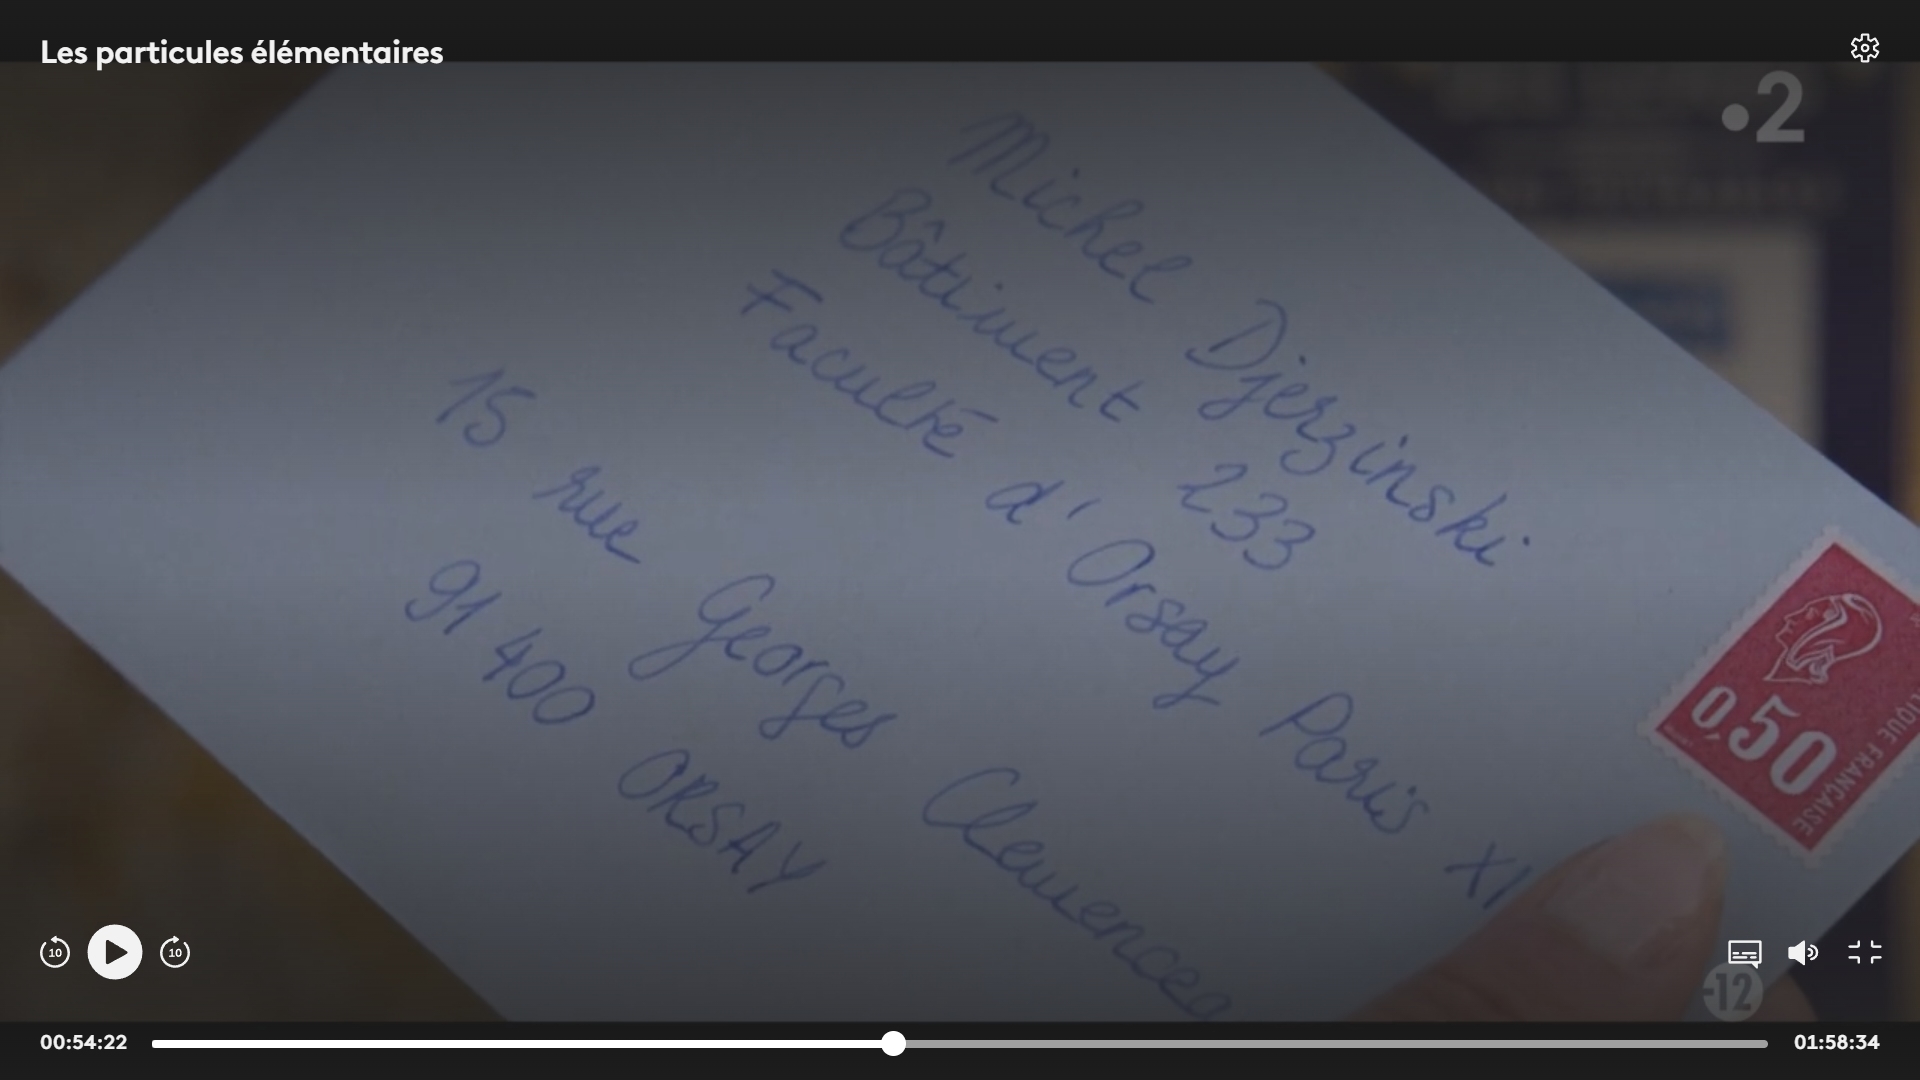 Les particules élémentaires
•2
Michel Djerzinski
Bâtiment 233
Faculté d'Orsay Paris XI
15 rue Georges Clemencea
91400 ORSAY
0,50
IQUE FRANÇAISE
10
10
-12
00:54:22
01:58:34